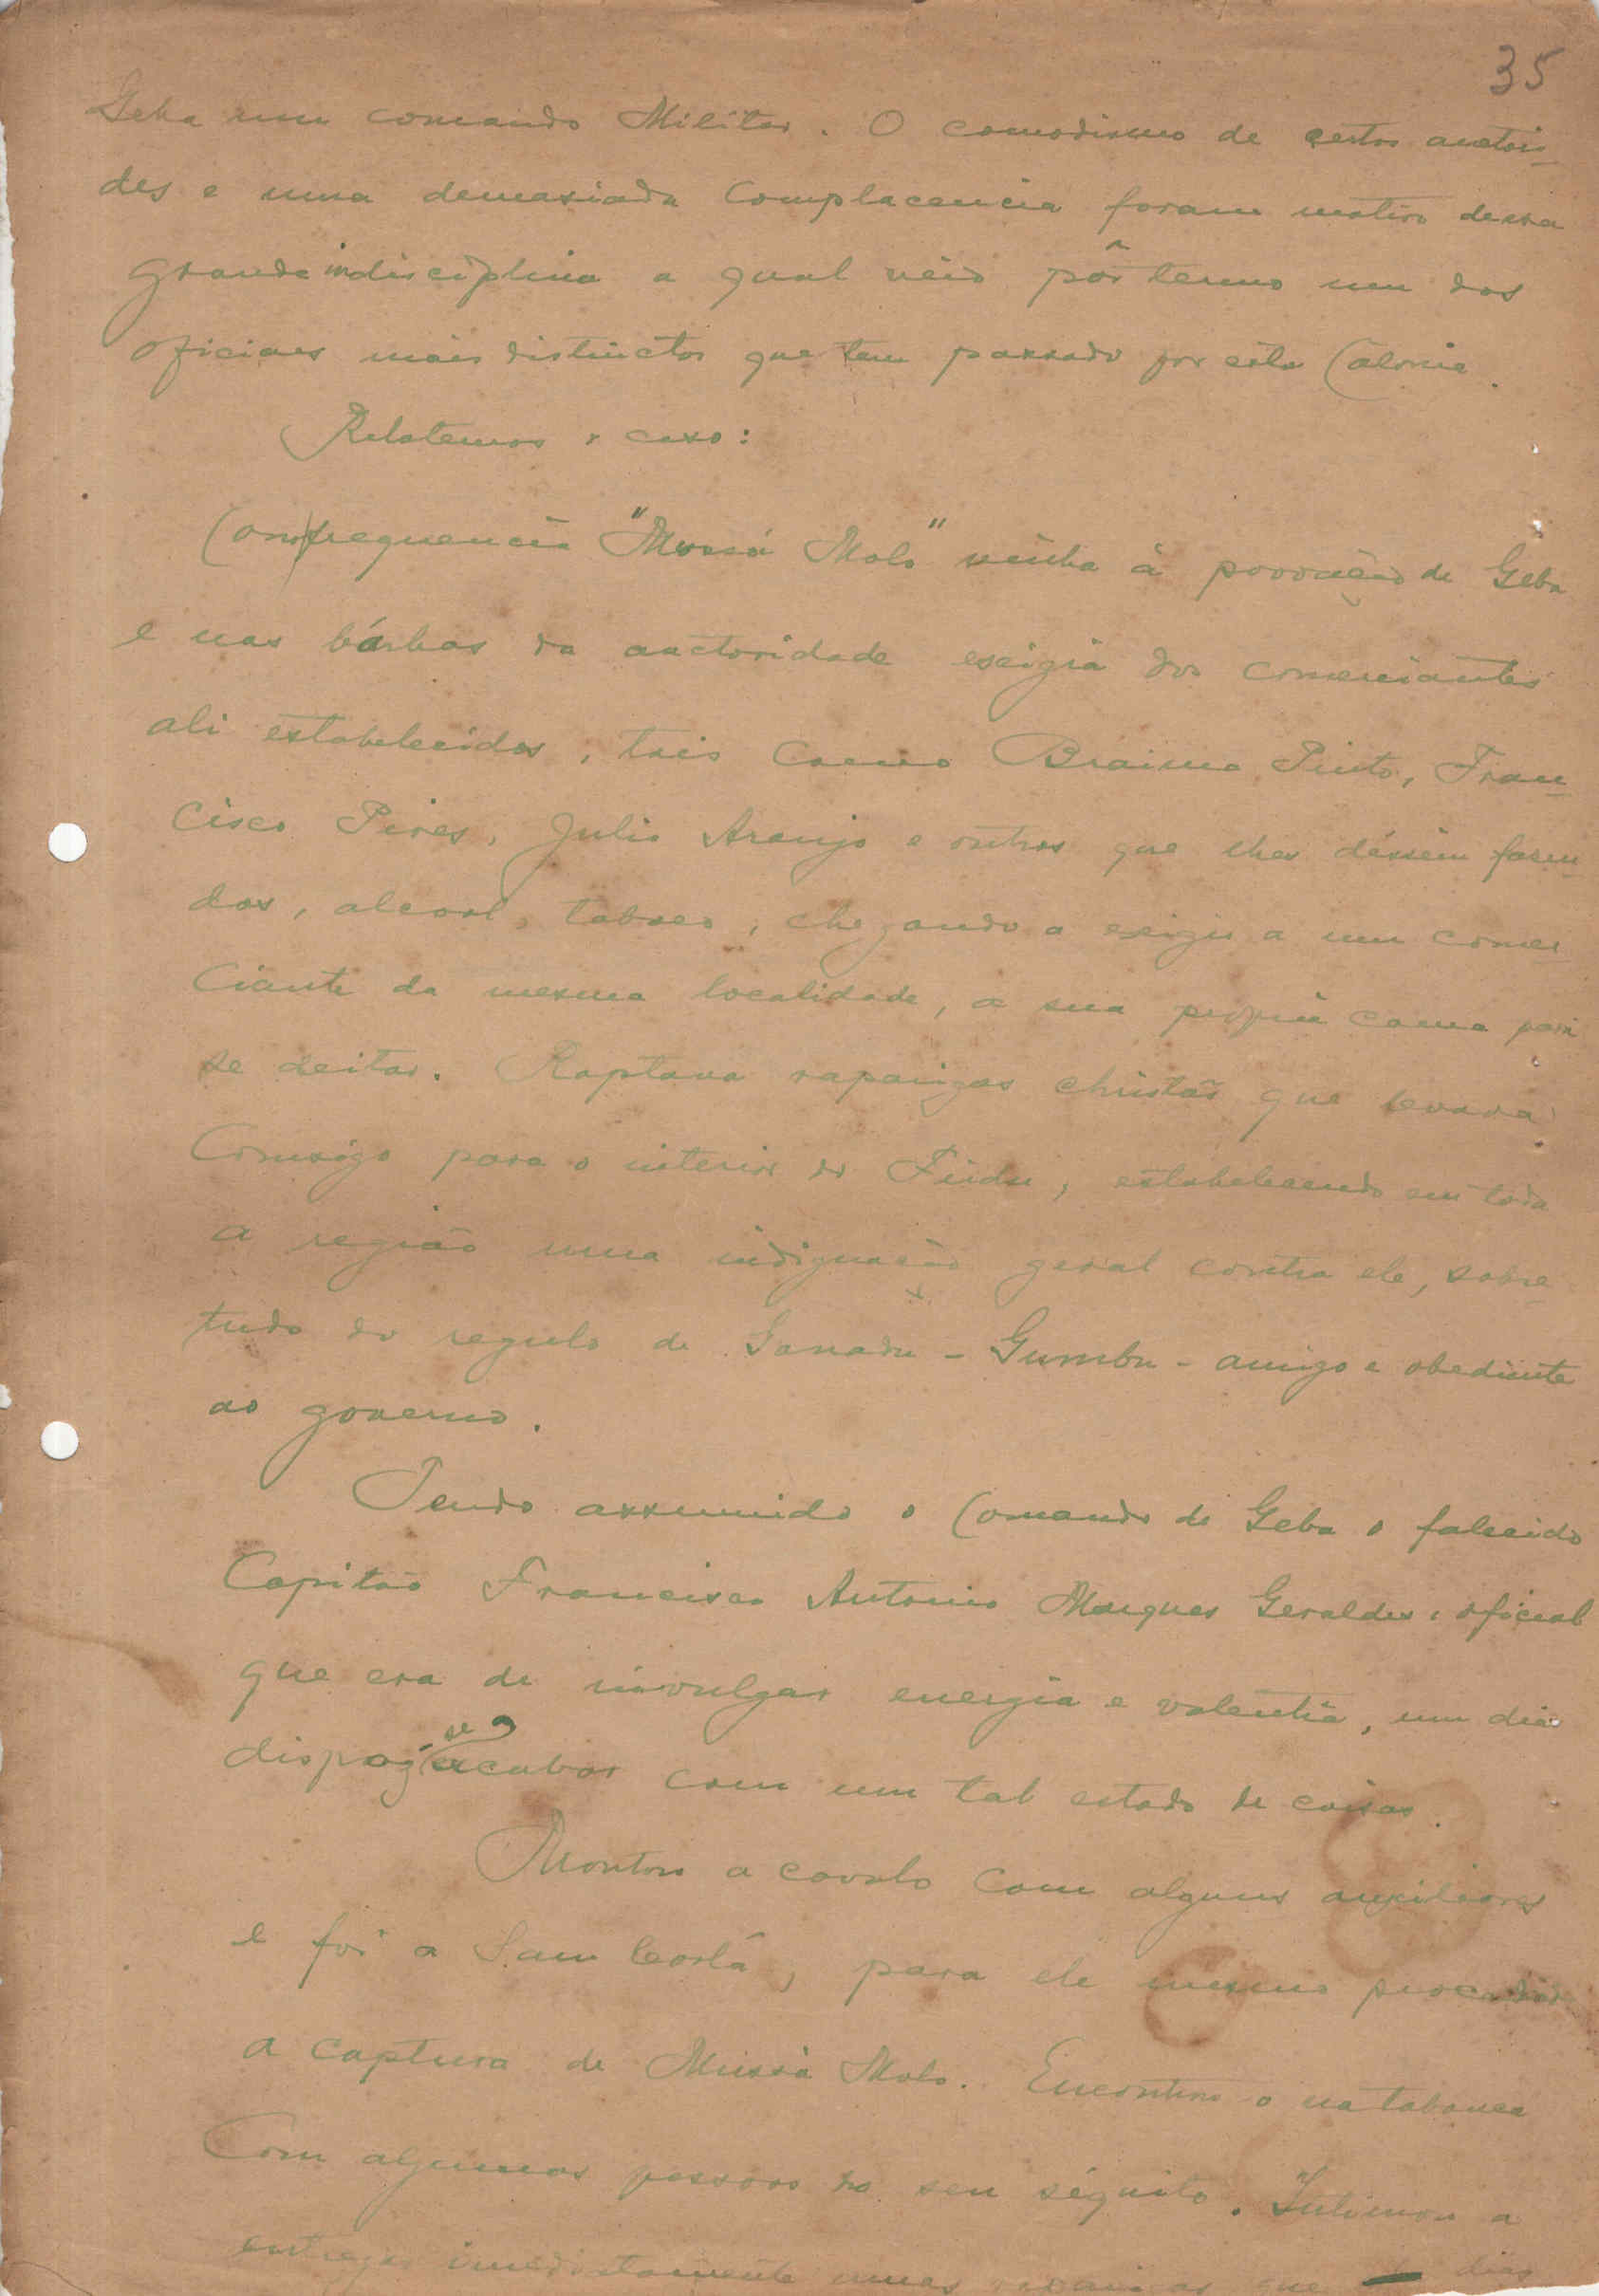 35
Geba um comando Militar. O comodismo de certas auctori-
des e uma demasiada complacencia foram motivo dessa
grande indisciplina a qual veio pôr termo um dos
oficiaes mais distinctos que tem passado por esta Colonia.
Relatemos o caso:
Com frequencia "Mussá Molo" vinha à povoação de Geba
e nas bárbas da auctoridade exigia dos comerciantes
ali estabelecidos, tais como Braima Pinto, Fran-
cisco Pires, Julio Araujo e outros que lhes déssem fazen-
das, alcool, tabaco, chegando a exigir a um comer-
ciante da mesma localidade, a sua propria cama para
se deitar. Raptava raparigas christãs que levava
comsigo para o interior do Firdu, estabelecendo em toda
a região uma indignação geral contra ele, sobre-
tudo do regulo de Ganadu - Gumbu - amigo e obediente
ao governo.
Tendo assumido o Comando de Geba o falecido
Capitão Francisco Antonio Marques Geraldes, oficial
que era de invulgar energia e valentia, um dia
dispoz se a acabar com um tal estado de coisas.
Montou a cavalo com alguns auxiliares
e foi a Sam Corlá, para ele mesmo proceder
a captura de Mussá Molo. Encontrou o na tabanca
com algumas pessoas do seu séquito. Intimou a
entregar imediatamente umas raparigas que dias